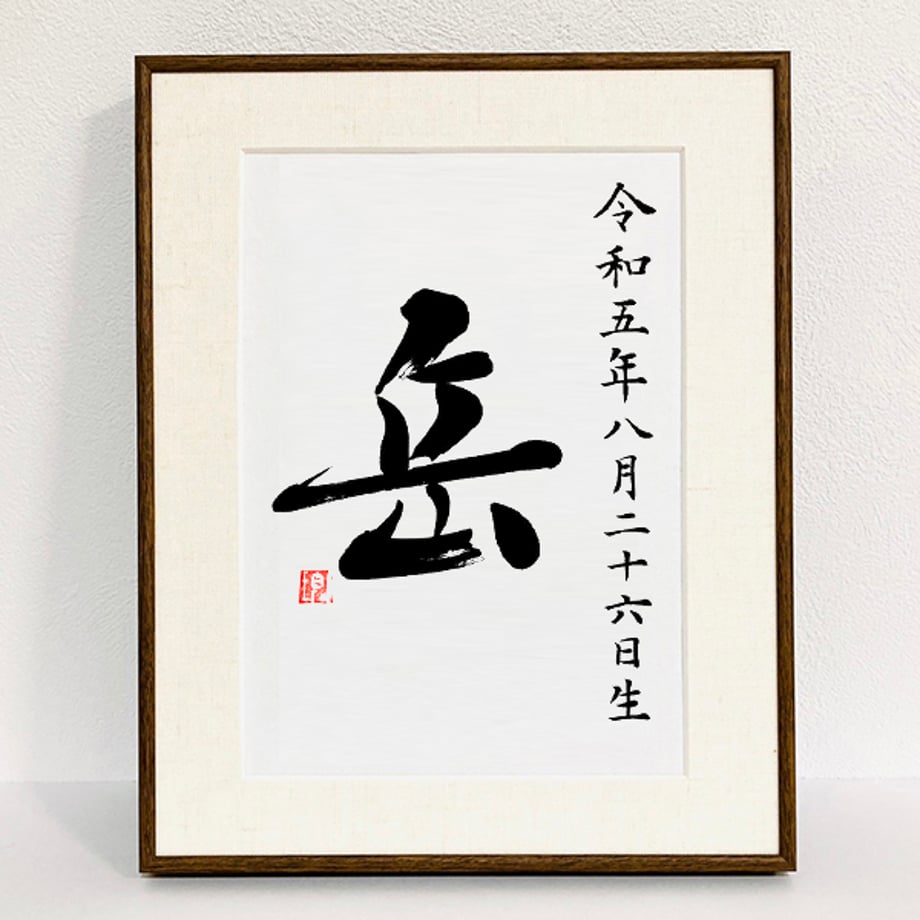 令和五年八月二十六日生
岳